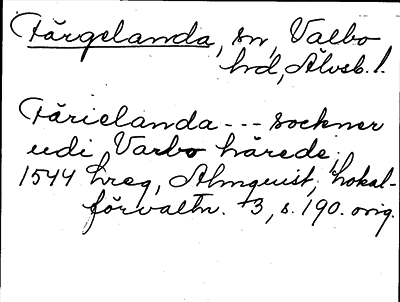 Färgelanda, sn, Valbo
hd, Älvsb. l.
Färielanda --- sockner
udi Varbo härede,
1544 hreg, Almquist, Lokal-
förvaltn. +3, s. 190. orig.